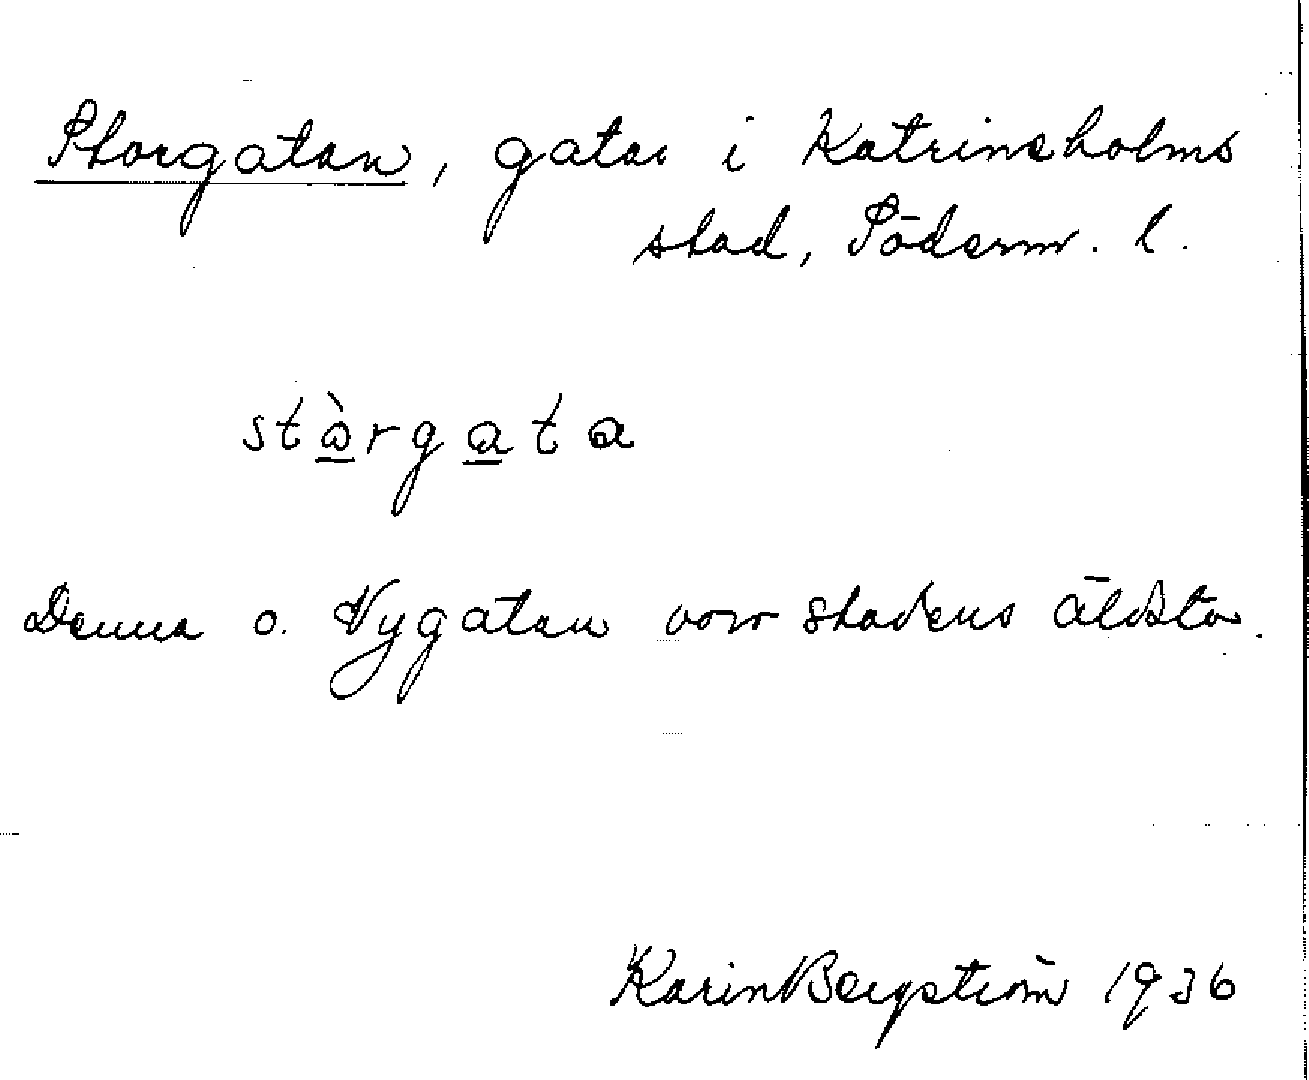 Storgatan, gata i Katrineholms
stad, Söderm. l.
stàrgata
Denna o. Nygatan voro stadens äldsta.
Karin Bergström 1936